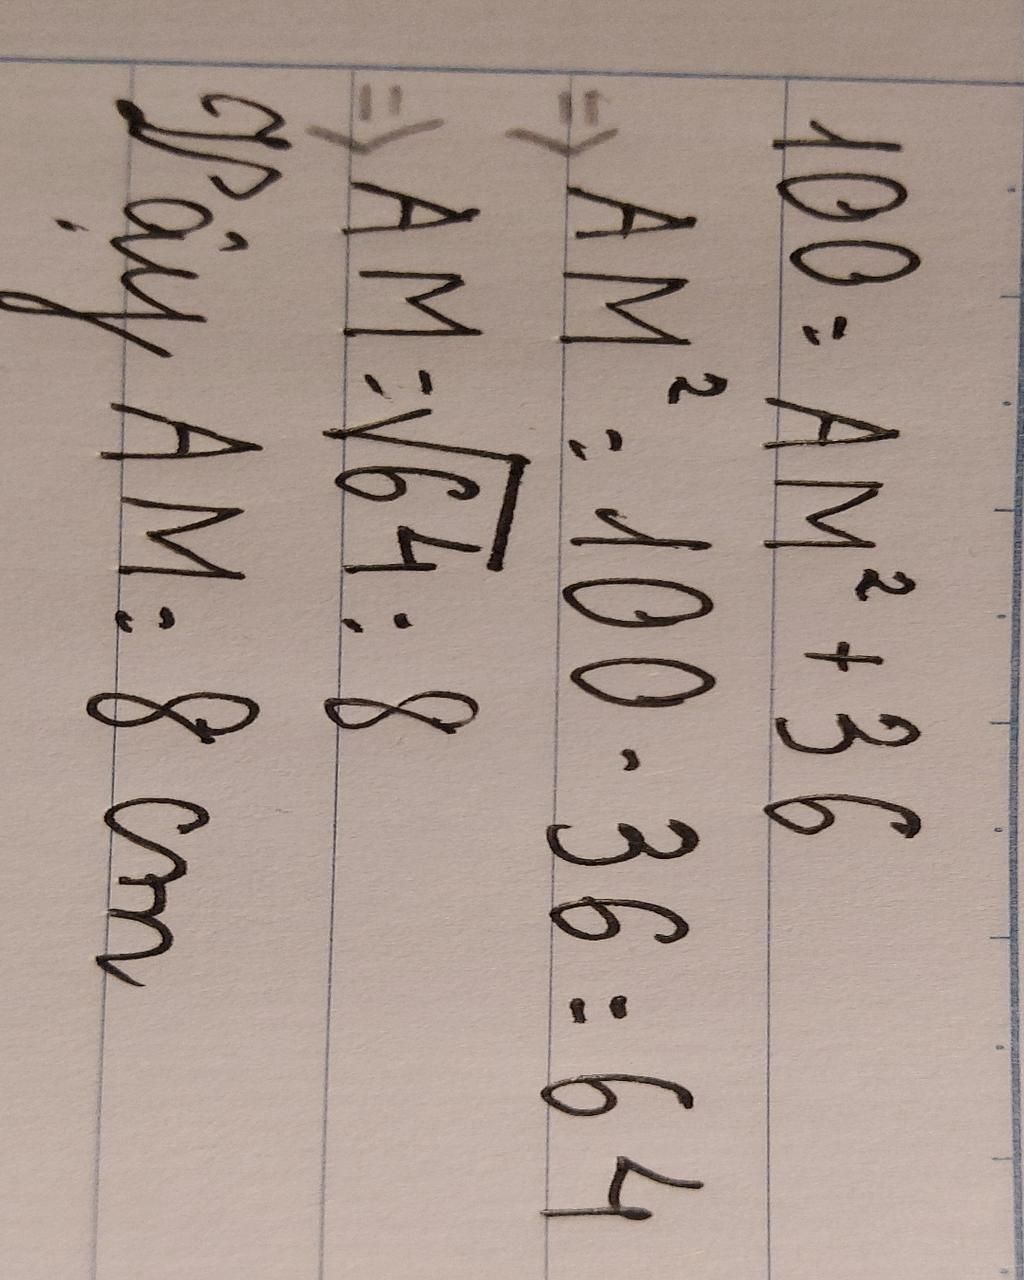 100 = AM² + 36
⇒ AM² = 100 - 36 = 64
⇒ AM = √64 = 8
Vậy AM = 8 cm